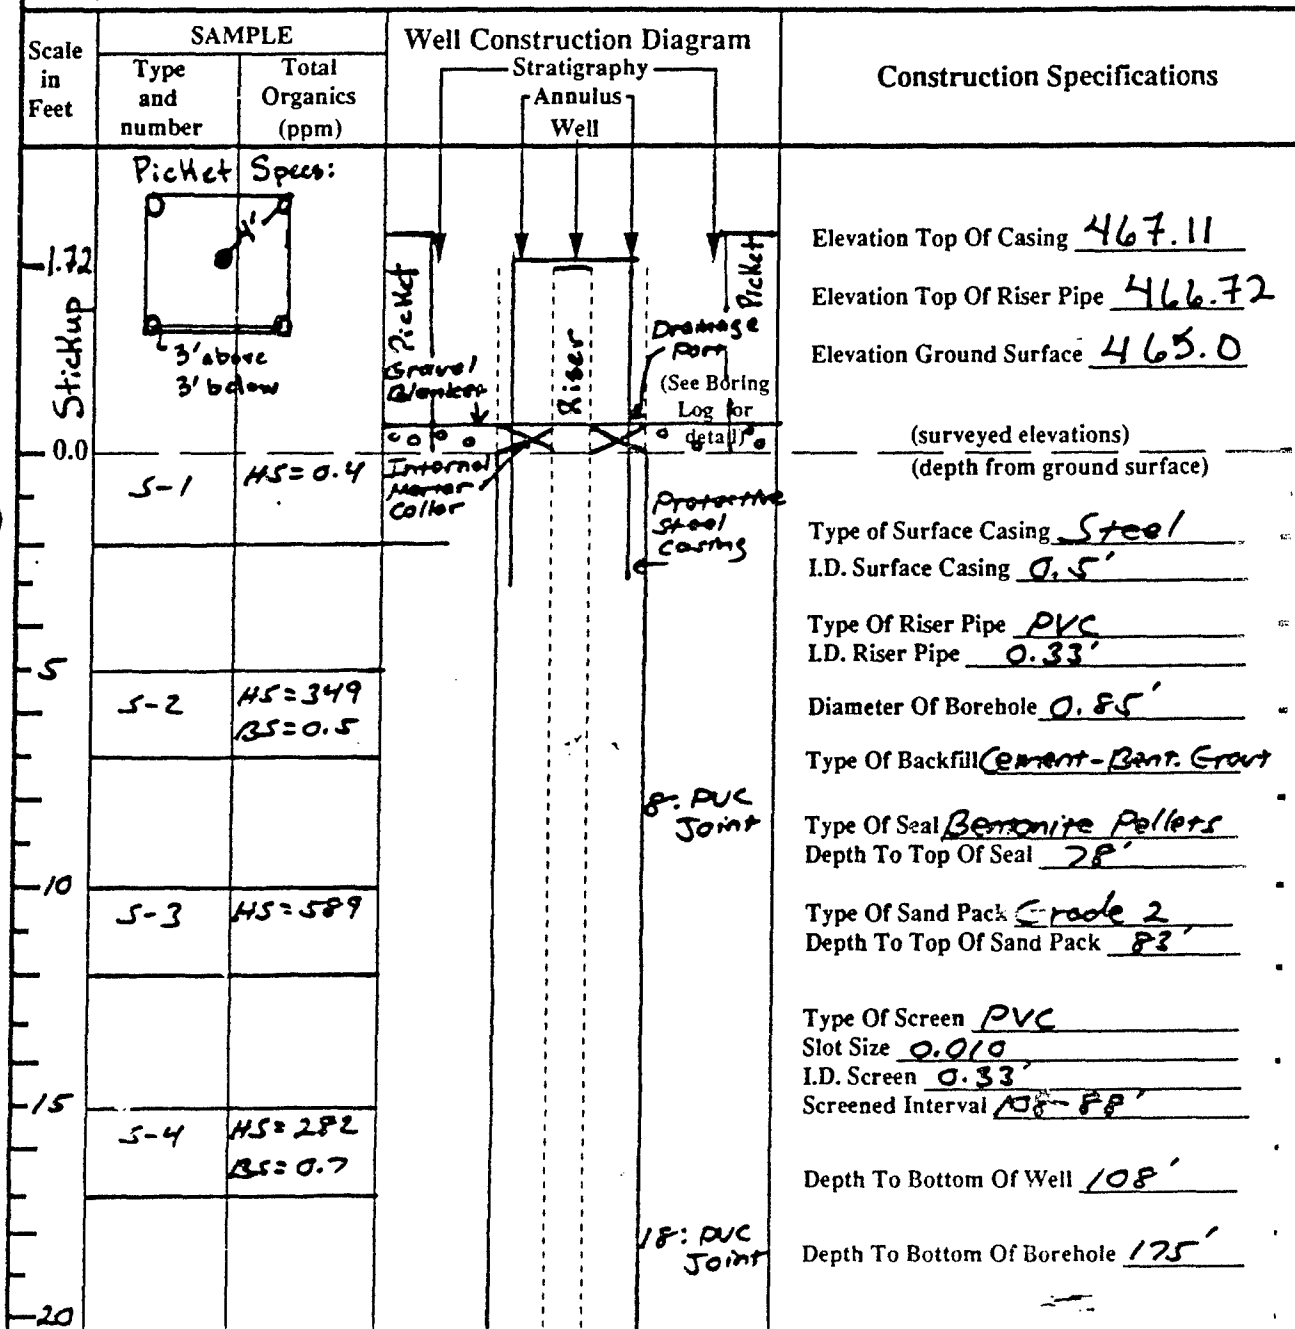 Scale
in
Feet
SAMPLE
Type
and
number
Total
Organics
(ppm)
Well Construction Diagram
Stratigraphy
Annulus
Well
Construction Specifications
Picket Specs:
4'
3' above
3' below
1.72
Stickup
0.0
5
10
15
20
S-1
HS=0.4
S-2
HS=349
BS=0.5
S-3
HS=589
S-4
HS=282
BS=0.7
Picket
Gravel
Blanket
Riser
Picket
Drainage
Port
(See Boring
Log for
detail)
Internal
Mortar
Collar
Protective
Steel
Casing
8: PVC
Joint
18: PVC
Joint
Elevation Top Of Casing 467.11
Elevation Top Of Riser Pipe 466.72
Elevation Ground Surface 465.0
(surveyed elevations)
(depth from ground surface)
Type of Surface Casing Steel
I.D. Surface Casing 0.5'
Type Of Riser Pipe PVC
I.D. Riser Pipe 0.33'
Diameter Of Borehole 0.85'
Type Of Backfill Cement-Bent. Grout
Type Of Seal Bentonite Pellets
Depth To Top Of Seal 78'
Type Of Sand Pack Grade 2
Depth To Top Of Sand Pack 83'
Type Of Screen PVC
Slot Size 0.010
I.D. Screen 0.33'
Screened Interval 108-88'
Depth To Bottom Of Well 108'
Depth To Bottom Of Borehole 175'